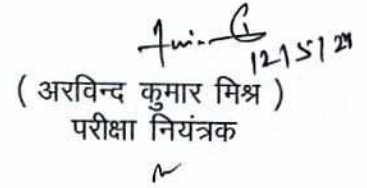 12/5/24
( अरविन्द कुमार मिश्र )
परीक्षा नियंत्रक